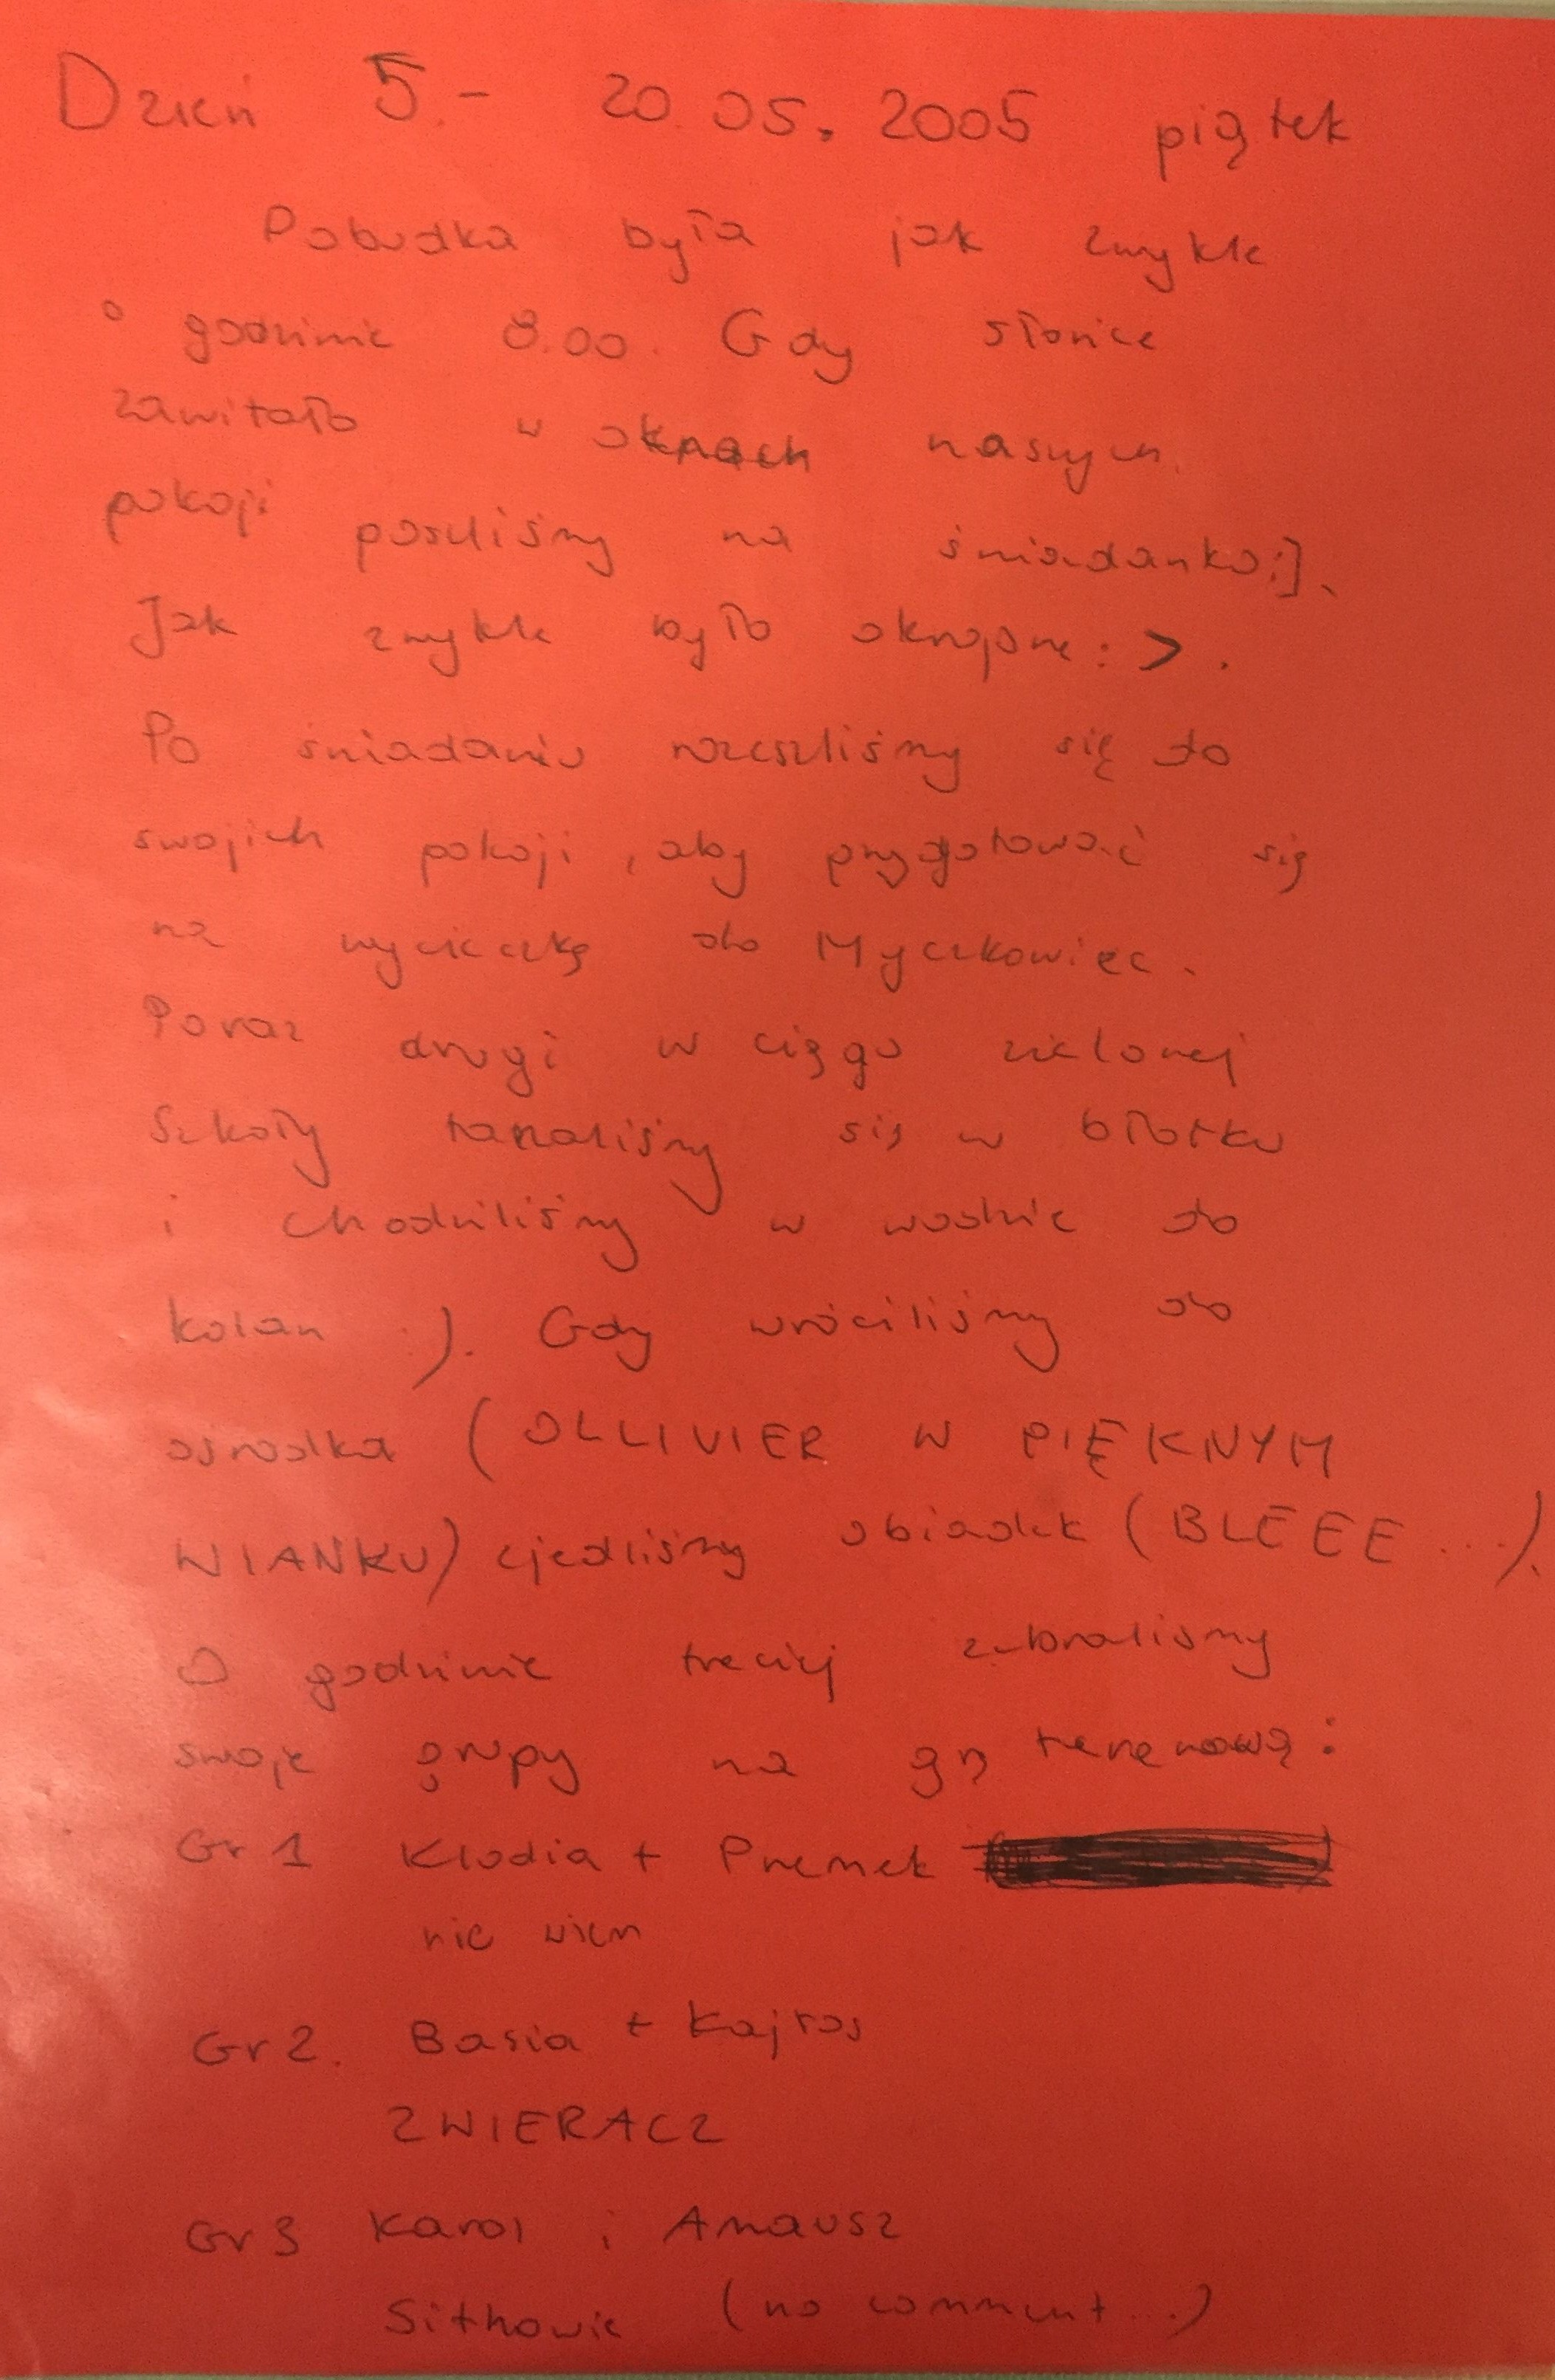 Dzień 5.- 20.05.2005 piątek
Pobudka była jak zwykle
o godzinie 8.00. Gdy słońce
zawitało w oknach naszych
pokoji poszliśmy na śniadanko:].
Jak zwykle było okropne :>.
Po śniadaniu rozeszliśmy się do
swojich pokoji, aby przygotować się
na wycieczkę do Myczkowiec.
Poraz drugi w ciągu zielonej
Szkoły taplaliśmy się w błotku
i chodziliśmy w wodzie do
kolan :). Gdy wróciliśmy do
ośrodka (OLLIVIER W PIĘKNYM
WIANKU) zjedliśmy obiadek (BLEEE ...).
O godzinie trzeciej zebraliśmy
swoje grupy na grę terenową:
Gr 1 Klodia + Przemek
nie wiem
Gr 2. Basia + Kajtos
ZWIERACZ
Gr 3 Karol i Amausz
Sithowie (no comment...)